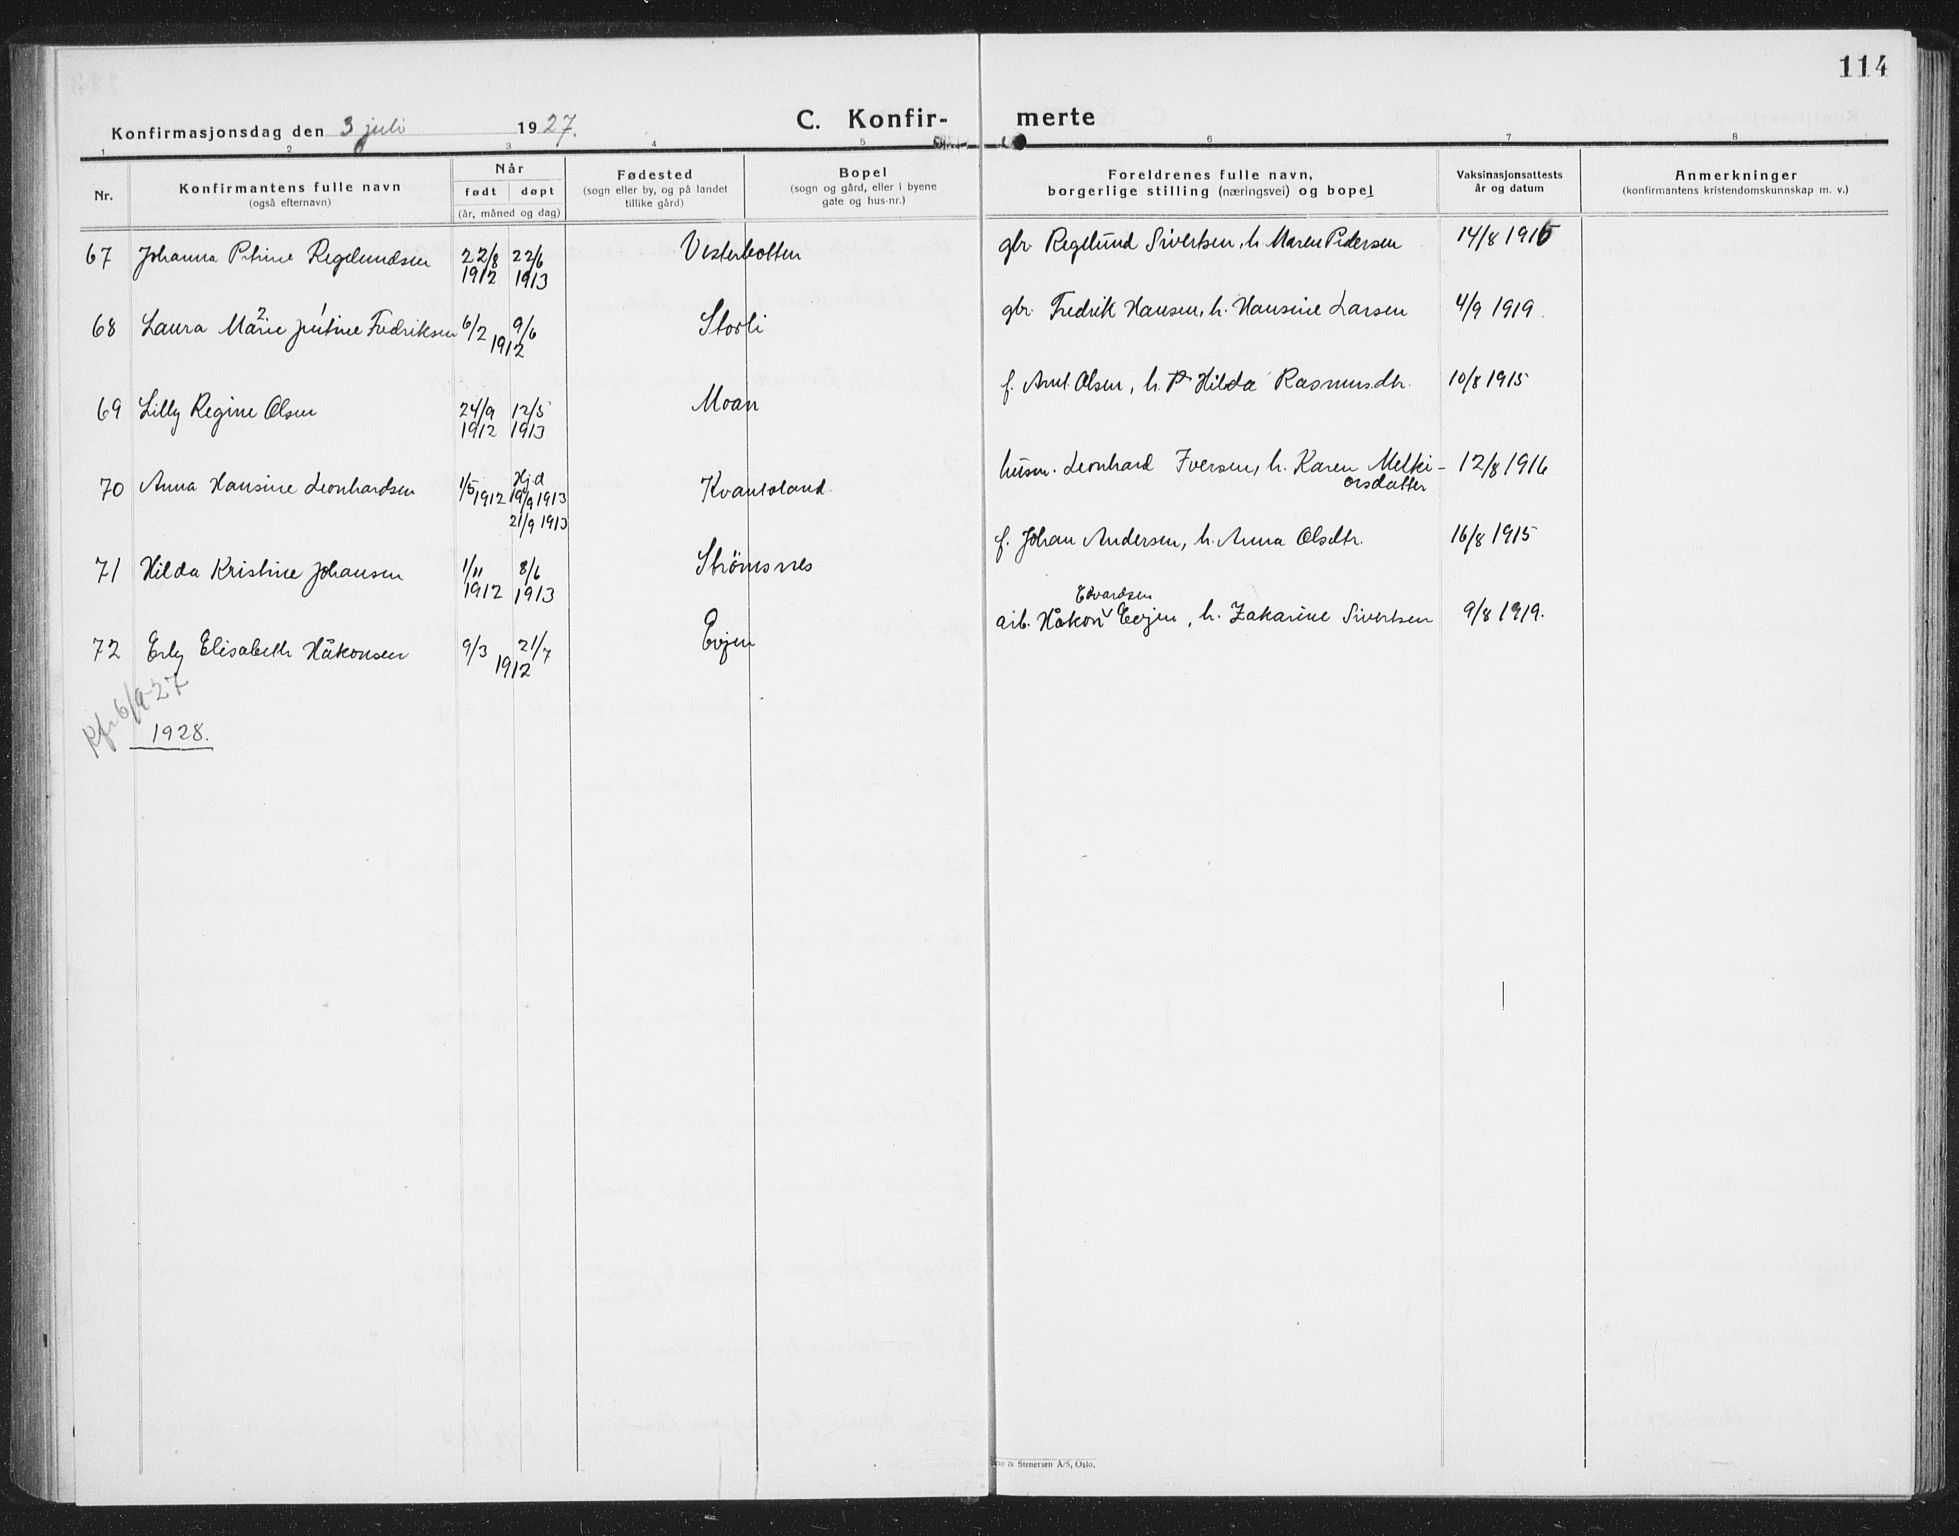 114
Konfirmasjonsdag den 3 juli 1927.
C. Konfir- merte
1 2 3 4 5 6 7 8
Nr.
Konfirmantens fulle navn
(også efternavn)
Når
født døpt
(år, måned og dag)
Fødested
(sogn eller by, og på landet
tillike gård)
Bopel
(sogn og gård, eller i byene
gate og hus-nr.)
Foreldrenes fulle navn,
borgerlige stilling (næringsvei) og bopel
Vaksinasjonsattests
år og datum
Anmerkninger
(konfirmantens kristendomskunnskap m. v.)
67 Johanna Petrine Regelundsen 22/8 1912 22/6 1913 Vesterbotten gbr. Regelund Sivertsen, h. Maren Pedersen 14/8 1915
68 Laura Marie 2 Jentine 1 Fredriksen 6/2 9/6 1912 Storli gbr. Fredrik Hansen, h. Hansine Larsen 4/9 1919.
69 Lilly Regine Olsen 24/9 1912 12/5 1913 Moan f. Arnt Olsen, h. Hilda Rasmusdtr. 10/8 1915
70 Anna Hansine Leonhardsen 1/5 1912 Hj.d 19/9 1913 21/9 1913 Kvantoland husm. Leonhard Iversen, h. Karen Melki-
orsdatter 12/8 1916
71 Hilda Kristine Johansen 1/11 1912 8/6 1913 Strømsnes f. Johan Andersen, h. Anna Olsdtr. 16/8 1915
72 Erly Elisabeth Håkonsen 9/3 21/7 1912 Evjen arb. Håkon Edvardsen Evjen, h. Zakarine Sivertsen 9/8 1919.
6/9-27
1928.
& Stenersen A/S, Oslo.